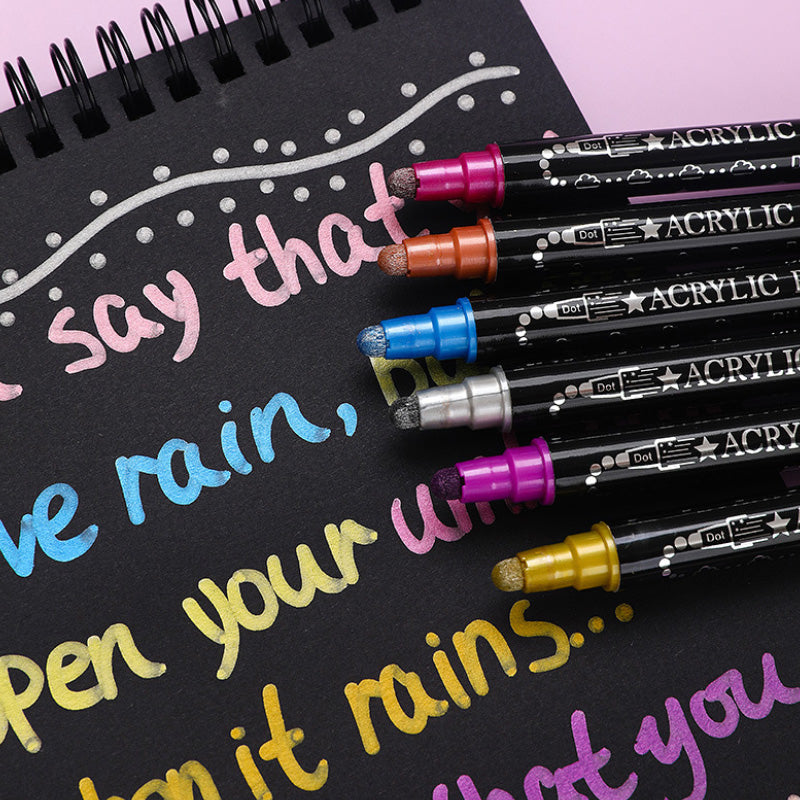 say that
rain, bu
open your um
when it rains...
that you
Dot ACRYLIC
Dot ACRYLIC
Dot ACRYLIC
Dot ACRYLIC
Dot ACRY
Dot